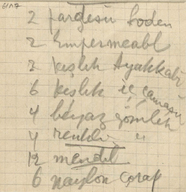 2 pardesü Loden
2 Empermeabl
3 kışlık Ayakkabı
6 kışlık iç çamaşır
4 beyaz gömlek
4 renkli "
12 mendil
6 naylon çorap